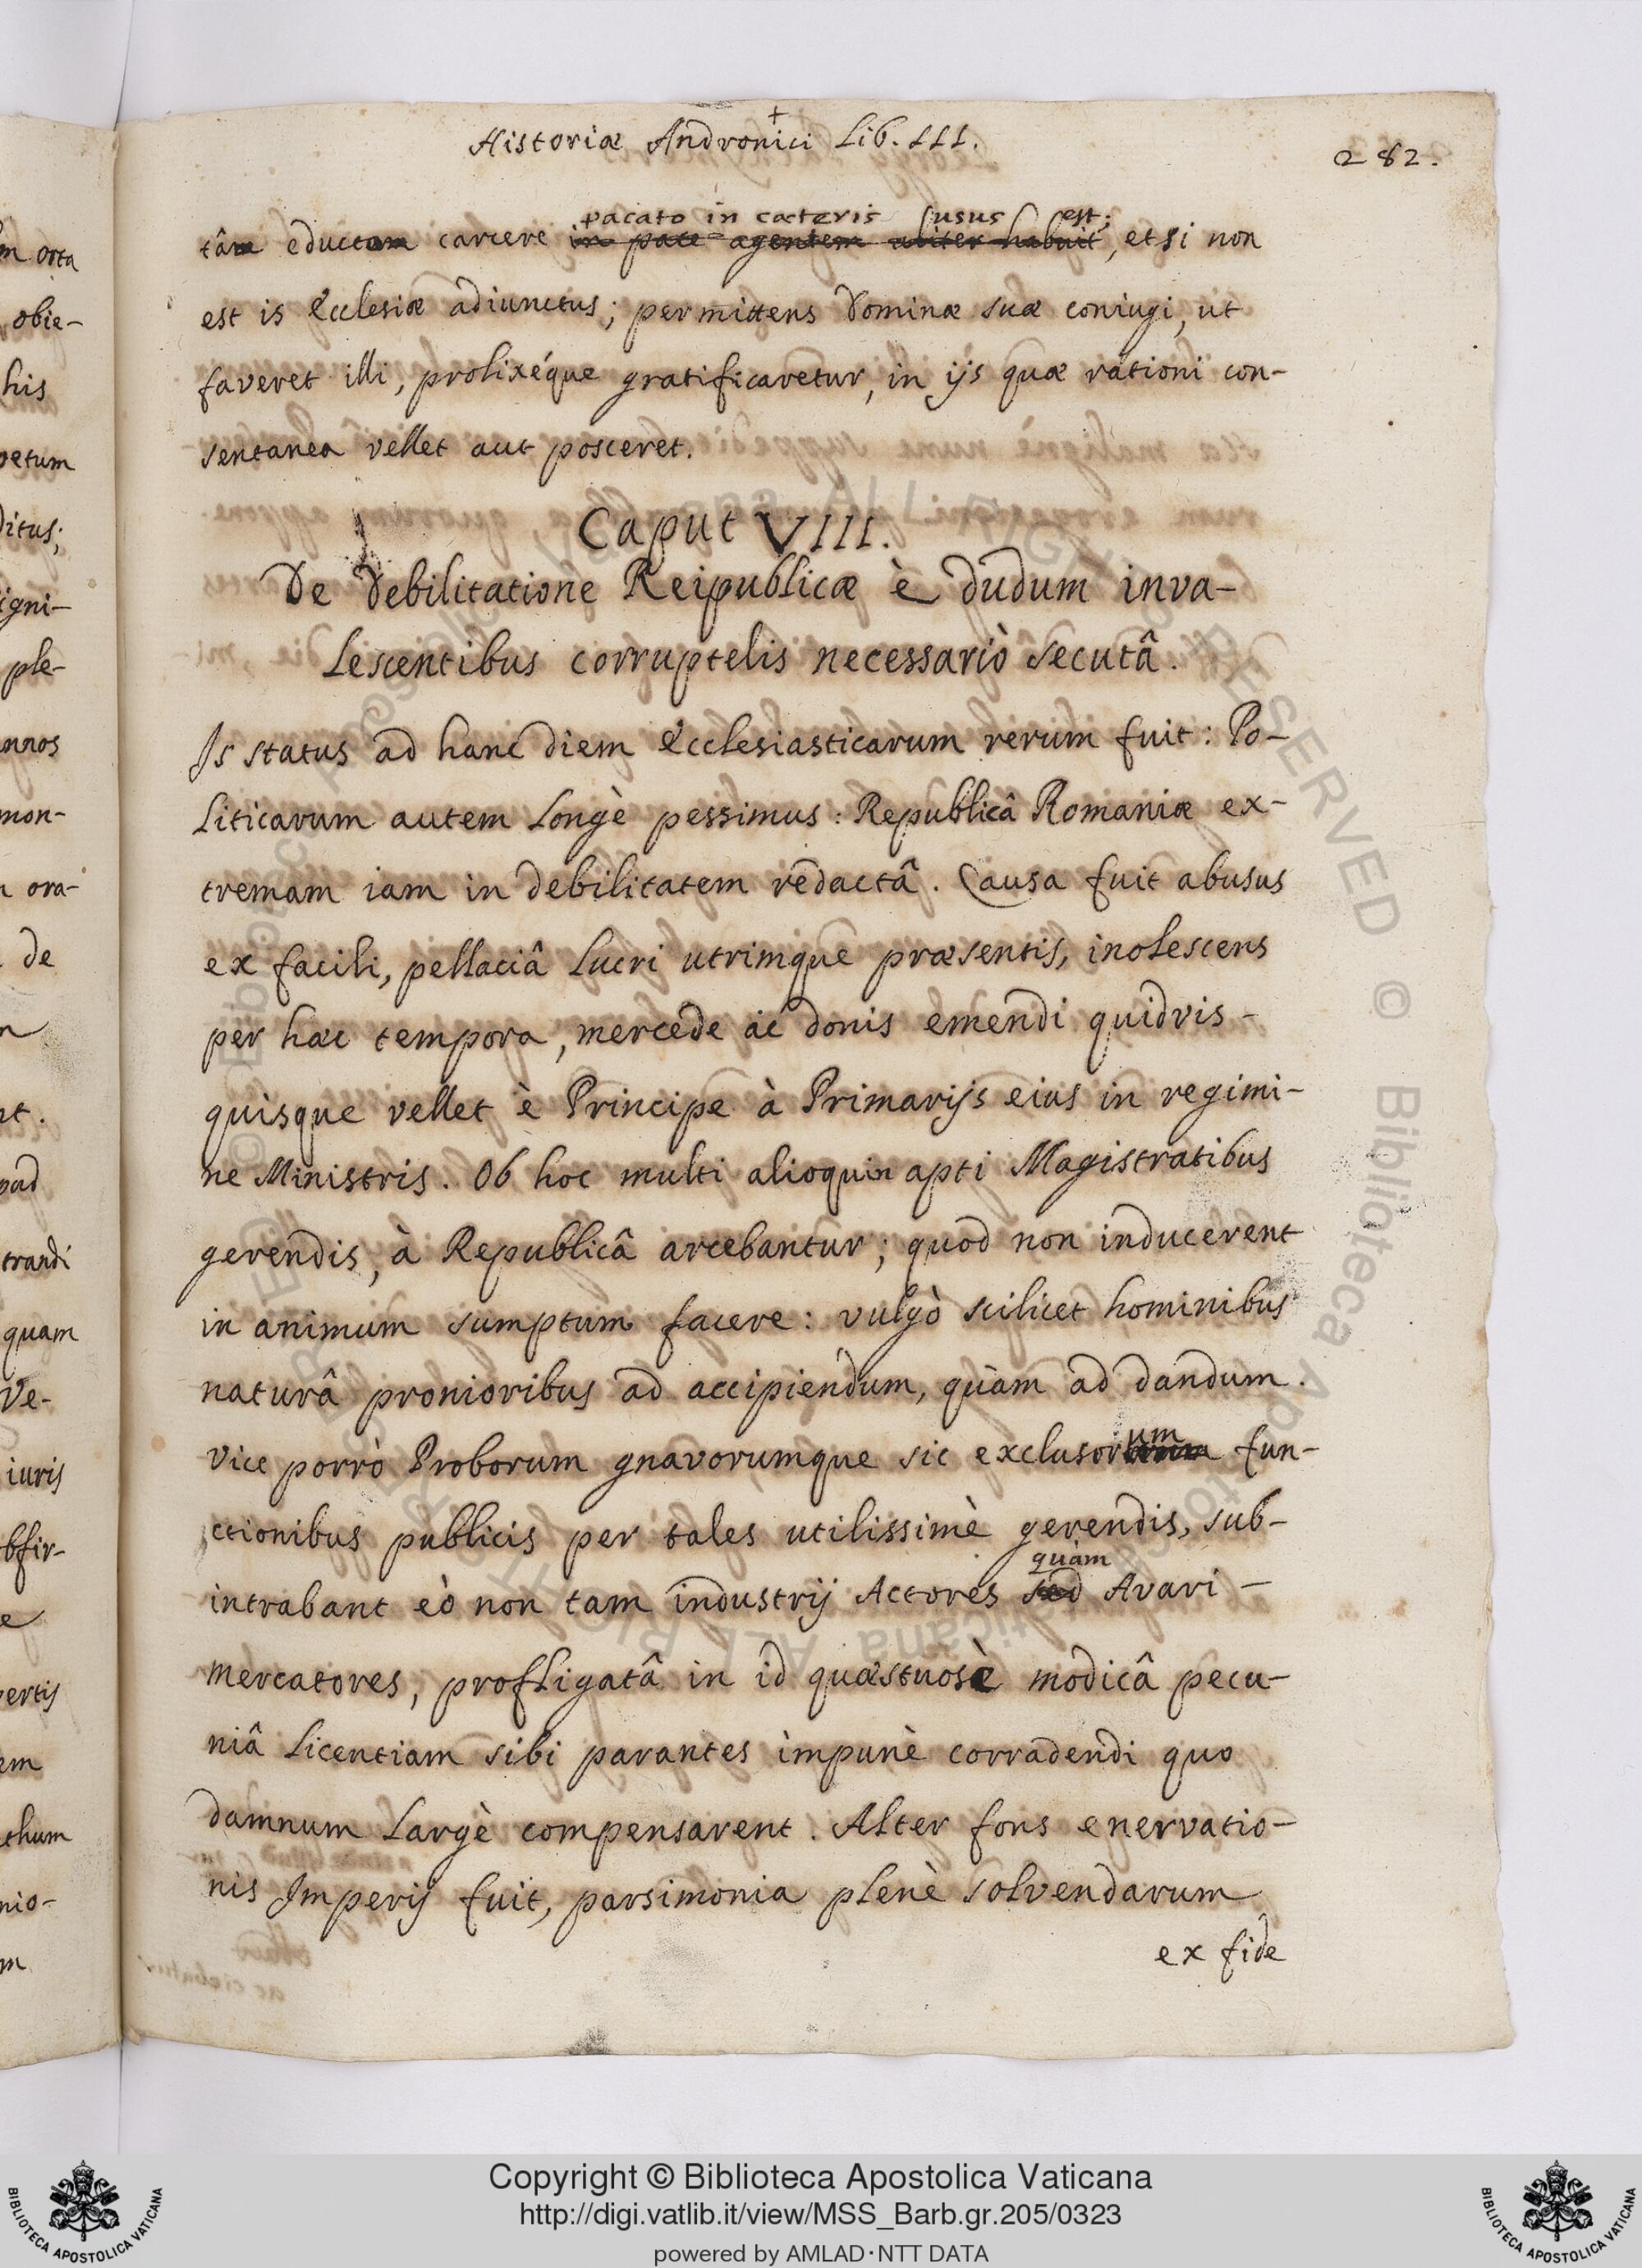 Historiæ Andronici Lib. III.
282.
pacato in cæteris usus est;
carcere in pace agentem aliter habuit, etsi non
est is Ecclesiæ adiunctus; permittens Dominæ suæ coniugi, ut
faveret illi, prolixéque gratificaretur, in ijs quæ rationi con-
sentanea vellet aut posceret.
Caput VIII.
De Debilitatione Reipublicæ è dudum inva-
lescentibus corruptelis necessariò secutâ.
Is status ad hanc diem Ecclesiasticarum rerum fuit: Po-
liticarum autem longè pessimus: Republicâ Romaniæ ex-
tremam iam in debilitatem redactâ. Causa fuit abusus
ex facili, pellaciâ lucri utrimque præsentis, inolescens
per hæc tempora, mercede ac donis emendi quidvis-
quisque vellet è Principe à Primarijs eius in regimi-
ne Ministris. Ob hoc multi alioquin apti Magistratibus
gerendis, à Republicâ arcebantur; quod non inducerent
in animum sumptum facere: vulgò scilicet hominibus
naturâ pronioribus ad accipiendum, quàm ad dandum.
vice porrò Proborum gnavorumque sic exclusorum fun-
ctionibus publicis per tales utilissimè gerendis, sub-
quàm
intrabant eò non tam industrij Actores sed Avari-
mercatores, profligatâ in id quæstuosè modicâ pecu-
niâ licentiam sibi parantes impunè corradendi quo
damnum largè compensarent. Alter fons enervatio-
nis Imperij fuit, parsimonia plenè solvendarum
ex fide
m orta
obie-
his
ditus;
igni-
ple-
annos
mon-
ora-
de
trandi
quam
Ve-
iuris
bfir-
pertis
thum
nio-
Copyright © Biblioteca Apostolica Vaticana
http://digi.vatlib.it/view/MSS_Barb.gr.205/0323
powered by AMLAD·NTT DATA
BIBLIOTECA APOSTOLICA VATICANA
BIBLIOTECA APOSTOLICA VATICANA